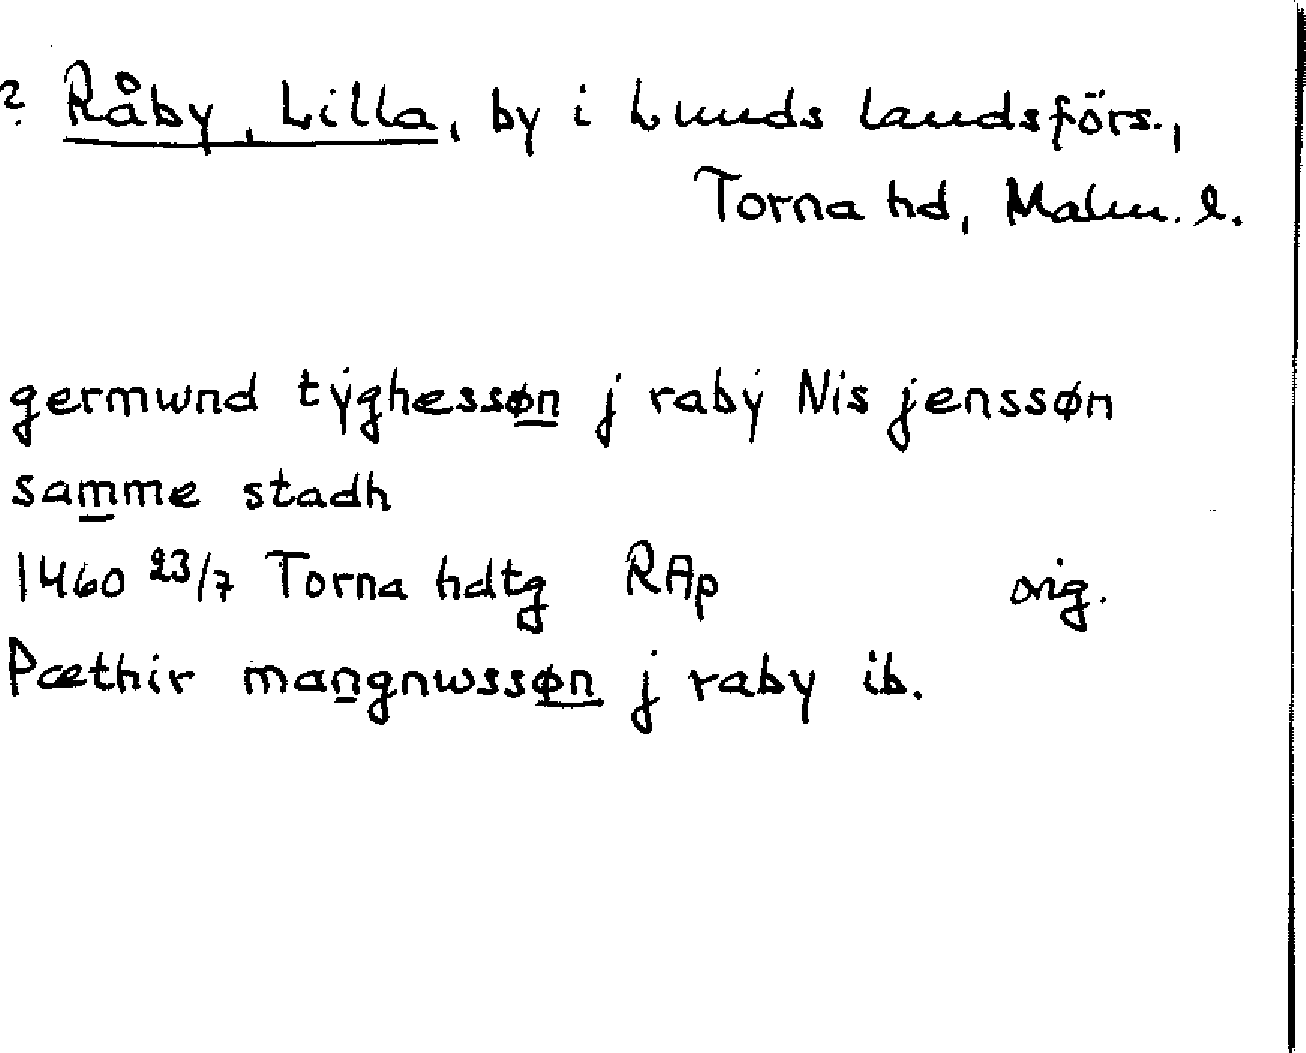 ? Råby, Lilla, by i Lunds landsförs.,
Torna hd, Malm. l.
germwnd tẏghessøn j rabẏ Nis jenssøn
samme stadh
1460 23/7 Torna hdtg RAp orig.
Pæthir mangnwssøn j raby ib.